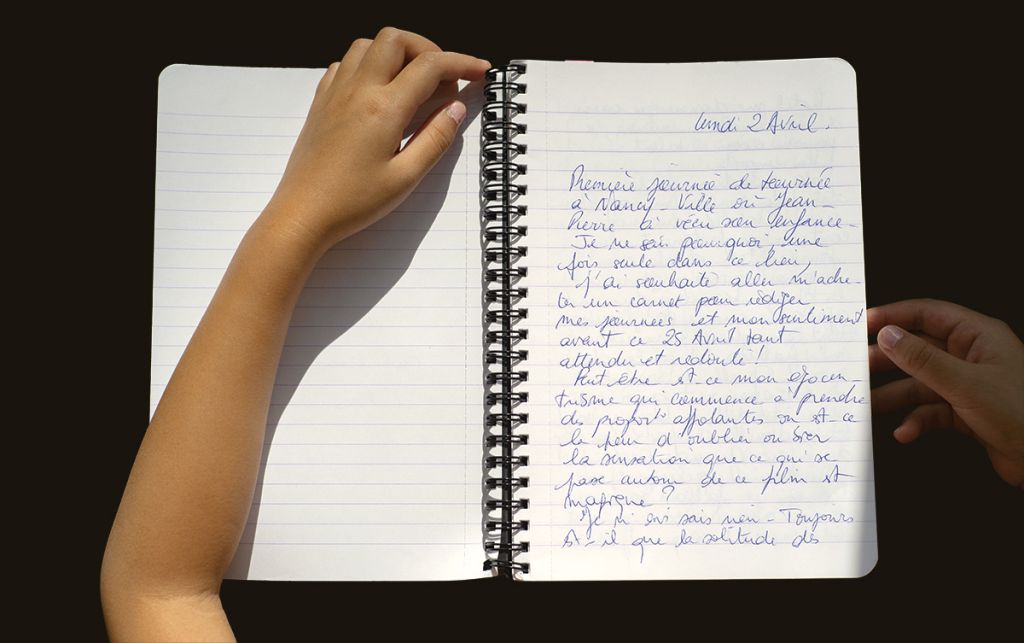 lundi 2 Avril.
Première journée de tournée
à Nancy - Ville où Jean-
Pierre a vécu son enfance -
Je ne sais pourquoi, une
fois seule dans ce lieu,
j'ai souhaité aller m'ache-
ter un carnet pour rédiger
mes journées et mon sentiment
avant ce 25 Avril tant
attendu et redouté !
Peut être est-ce mon égocen-
trisme qui commence à prendre
des proport° affolantes ou est-ce
la peur d'oublier ou bien
la sensation que ce qui se
passe autour de ce film est
magique ?
Je n'en sais rien - Toujours
est-il que la solitude des